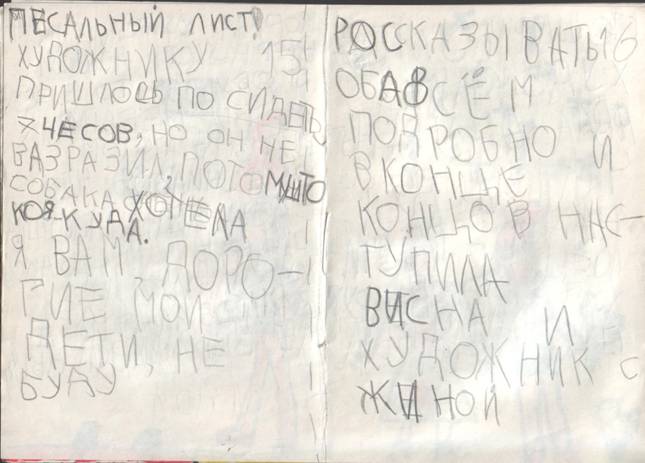 ПЕСАЛЬНЫЙ ЛИСТ!
ХУДОЖНИКУ 15
ПРИШЛОСЬ ПО СИДЕТЬ
7 ЧЕСОВ, НО ОН НЕ
ВАЗРАЗИЛ, ПОТОМУШТО
СОБАКА ХОТЕЛА
КОЯ КУДА.
Я ВАМ, ДОРО-
ГИЕ МОИ
ДЕТИ, НЕ
БУДУ
РОССКАЗЫВАТЬ 16
ОБАВСЁМ
ПОДРОБНО И
В КОНЦЕ
КОНЦОВ НАС-
ТУПИЛА
ВИСНА И
ХУДОЖНИК С
ЖИНОЙ